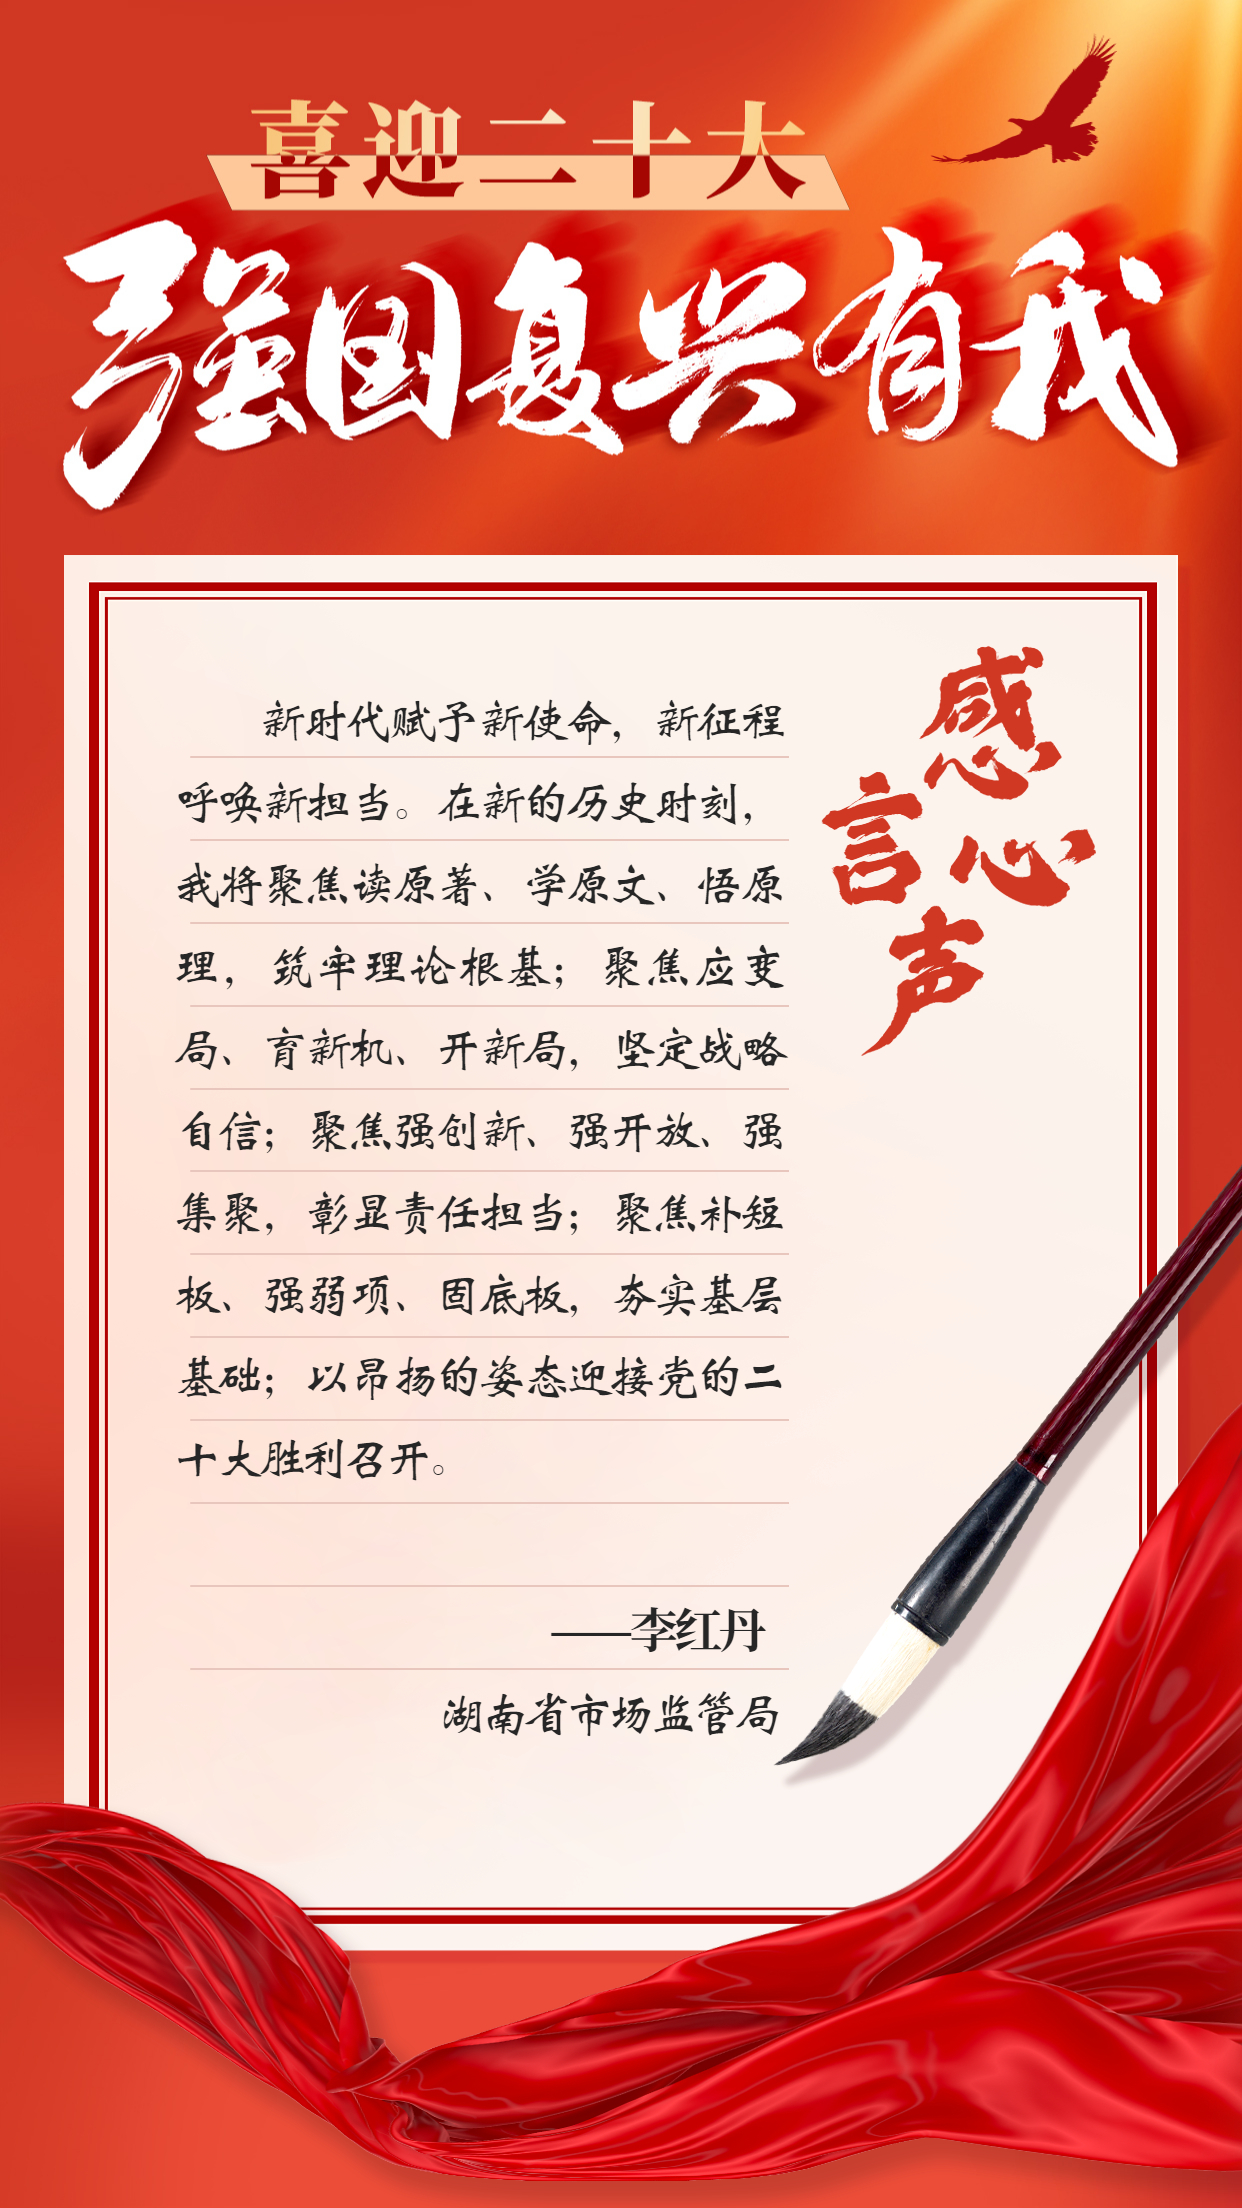 喜迎二十大
强国复兴有我
感言心声
新时代赋予新使命，新征程
呼唤新担当。在新的历史时刻，
我将聚焦读原著、学原文、悟原
理，筑牢理论根基；聚焦应变
局、育新机、开新局，坚定战略
自信；聚焦强创新、强开放、强
集聚，彰显责任担当；聚焦补短
板、强弱项、固底板，夯实基层
基础；以昂扬的姿态迎接党的二
十大胜利召开。
——李红丹
湖南省市场监管局